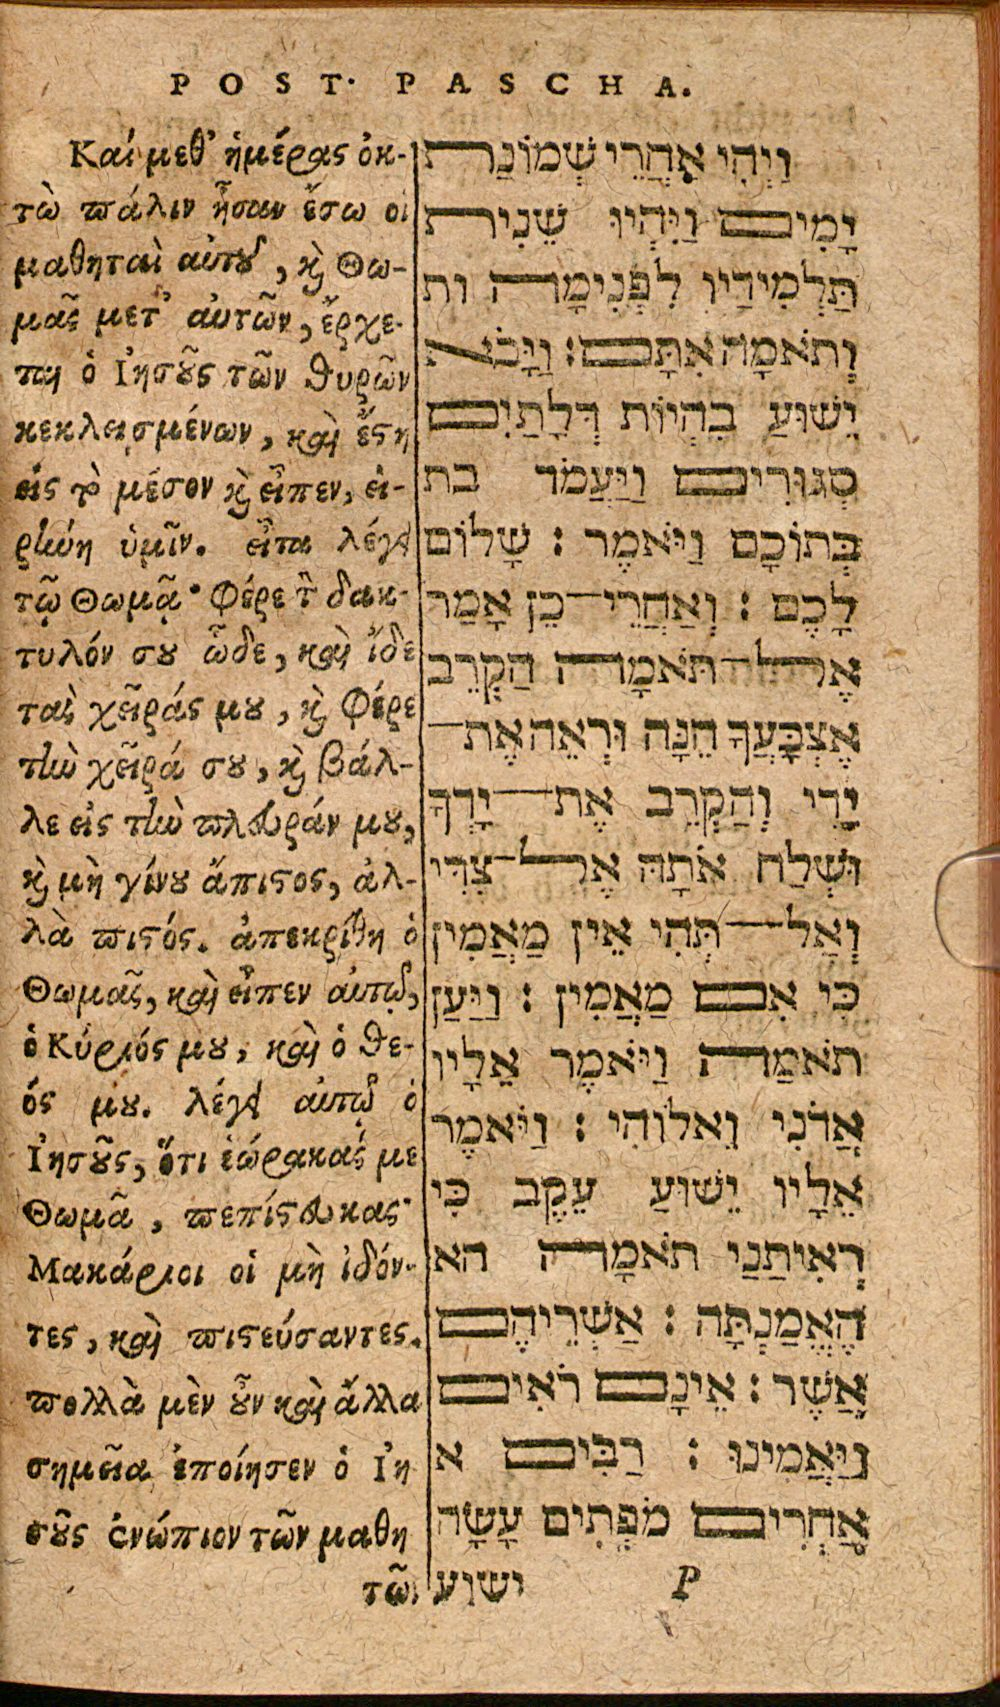 POST· PASCHA.
Καὶ μεθ' ἡμέρας ὀκ-
τὼ πάλιν ἦσαν ἔσω οἱ
μαθηταὶ αὐτοῦ, καὶ Θω-
μᾶς μετ' αὐτῶν, ἔρχε-
ται ὁ Ἰησοῦς τῶν θυρῶν
κεκλεισμένων, καὶ ἔστη
εἰς τὸ μέσον καὶ εἶπεν, εἰ-
ρήνη ὑμῖν. εἶτα λέγει
τῷ Θωμᾷ· Φέρε τὸν δακ-
τυλόν σου ὧδε, καὶ ἴδε
τὰς χεῖράς μου, καὶ Φέρε
τὴν χεῖρά σου, καὶ βάλ-
λε εἰς τὴν πλευράν μου,
καὶ μὴ γίνου ἄπιστος, ἀλ-
λὰ πιστός. ἀπεκρίθη ὁ
Θωμᾶς, καὶ εἶπεν αὐτῷ,
ὁ Κύριός μου, καὶ ὁ θε-
ός μου. λέγει αὐτῷ ὁ
Ἰησοῦς, ὅτι ἑώρακάς με
Θωμᾶ, πεπίστευκας·
Μακάριοι οἱ μὴ ἰδόν-
τες, καὶ πιστεύσαντες.
πολλὰ μὲν οὖν καὶ ἄλλα
σημεῖα ἐποίησεν ὁ Ἰη
σοῦς ἐνώπιον τῶν μαθη
τῶν
וַיְהִי אַחֲרֵי שְׁמוֹנַת
יָמִים וַיִּהְיוּ שֵׁנִית
תַּלְמִידָיו לִפְנִימָה ות
וְתֹאמָה אִתָּם : וַיָּבֹא
יֵשׁוּעַ בִּהְיוֹת דְּלָתַיִם
סְגוּרִים וַיַּעֲמֹד בת
בְּתוֹכָם וַיֹּאמֶר : שָׁלוֹם
לָכֶם : וְאַחֲרֵי־כֵן אָמַר
אֶל־תֹּאמָה הַקְרֵב
אֶצְבָּעֲךָ הֵנָּה וּרְאֵה אֶת־
יָדַי וְהַקְרֵב אֶת־יָדְךָ
וּשְׁלַח אֹתָהּ אֶל־צִדִּי
וְאַל־תְּהִי אֵין מַאֲמִין
כִּי אִם מַאֲמִין : וַיַּעַן
תֹאמַה וַיֹּאמֶר אֵלָיו
אֲדֹנִי וֵאלוֹהִי : וַיֹּאמֶר
אֵלָיו יֵשׁוּעַ עֵקֶב כִּי
רְאִיתַנִי תֹאמָה הא
הֶאֱמַנְתָּה : אַשְׁרֵיהֶם
אֲשֶׁר : אֵינָם רֹאִים
וַיַּאֲמִינוּ : רַבִּים א
אֲחֵרִים מֹפְתִים עָשָׂה
ישוע
P